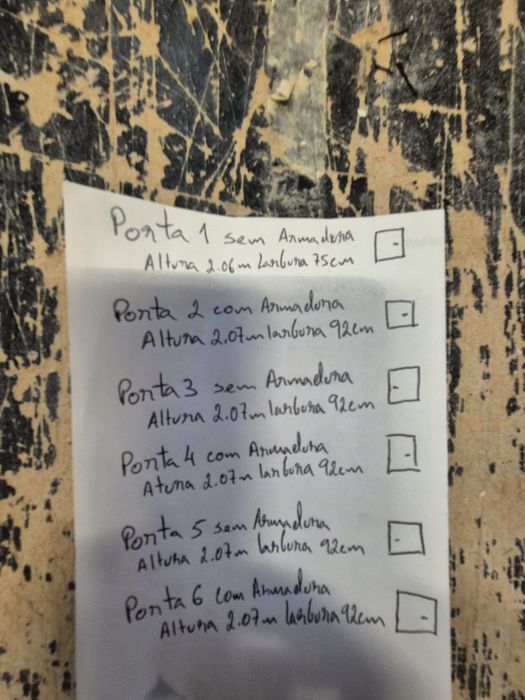 Porta 1 sem Armadura
Altura 2.06m larbura 75cm
Porta 2 com Armadura
Altura 2.07m larbura 92cm
Porta 3 sem Armadura
Altura 2.07m larbura 92cm
Porta 4 com Armadura
Atura 2.07m larbura 92cm
Porta 5 sem Armadura
Altura 2.07m larbura 92cm
Porta 6 com Armadura
Altura 2.07m larbura 92cm